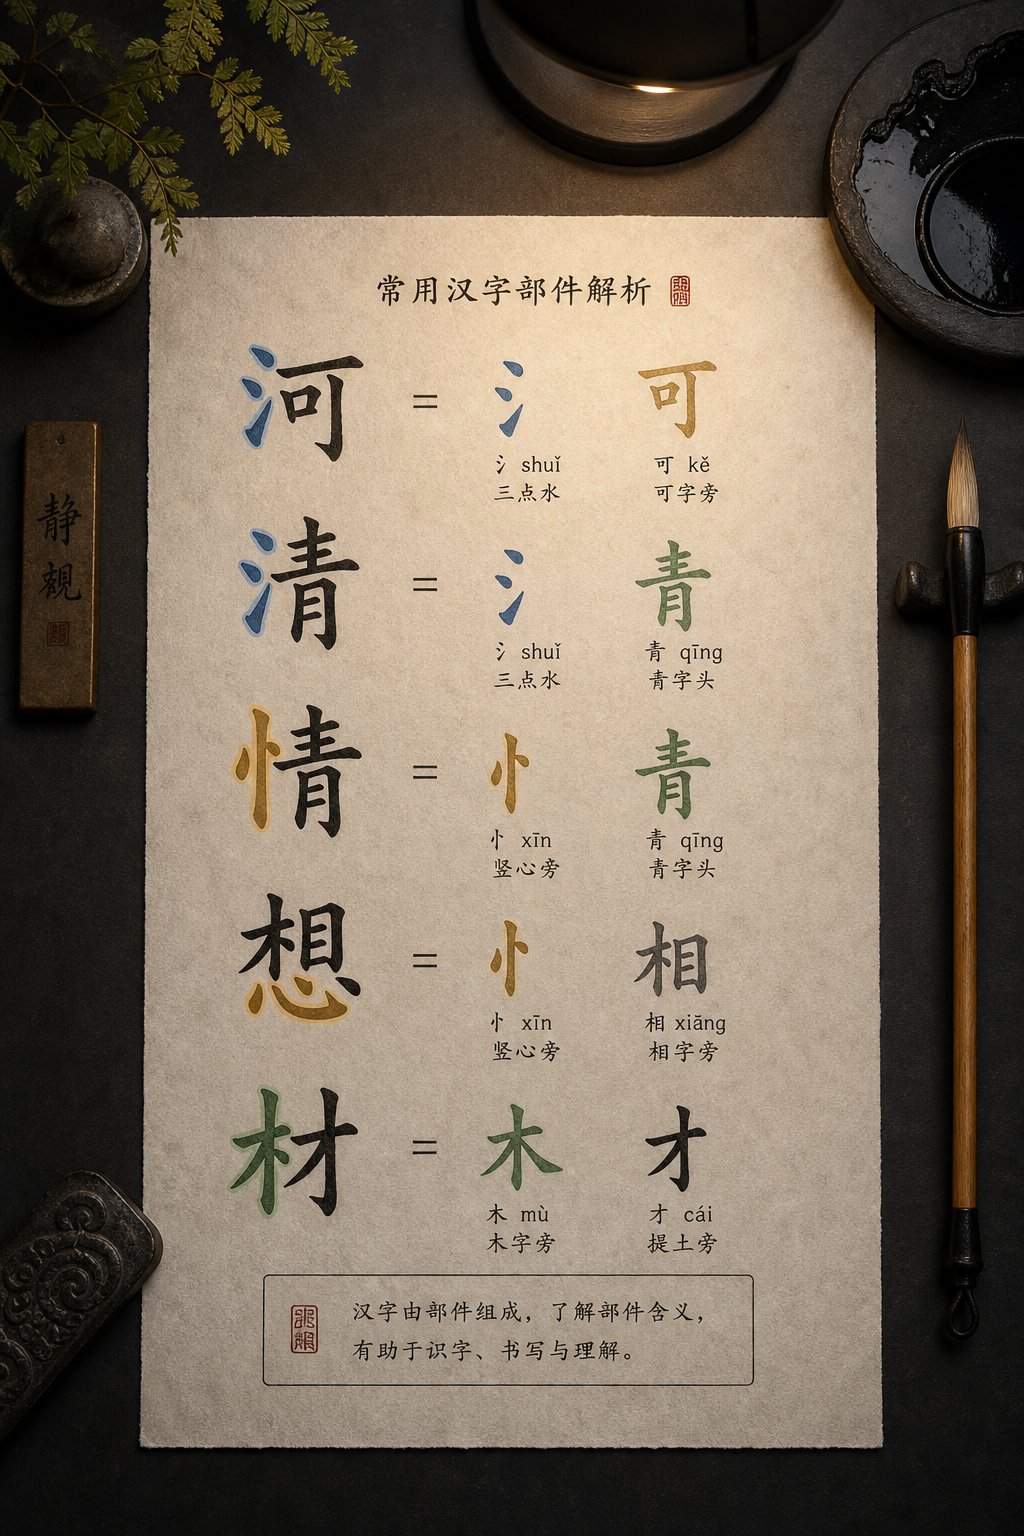 常用汉字部件解析
河 = 氵 可
氵 shuǐ 可 kě
三点水 可字旁
清 = 氵 青
氵 shuǐ 青 qīng
三点水 青字头
情 = 忄 青
忄 xīn 青 qīng
竖心旁 青字头
想 = 忄 相
忄 xīn 相 xiāng
竖心旁 相字旁
材 = 木 才
木 mù 才 cái
木字旁 提土旁
汉字由部件组成，了解部件含义，
有助于识字、书写与理解。
静